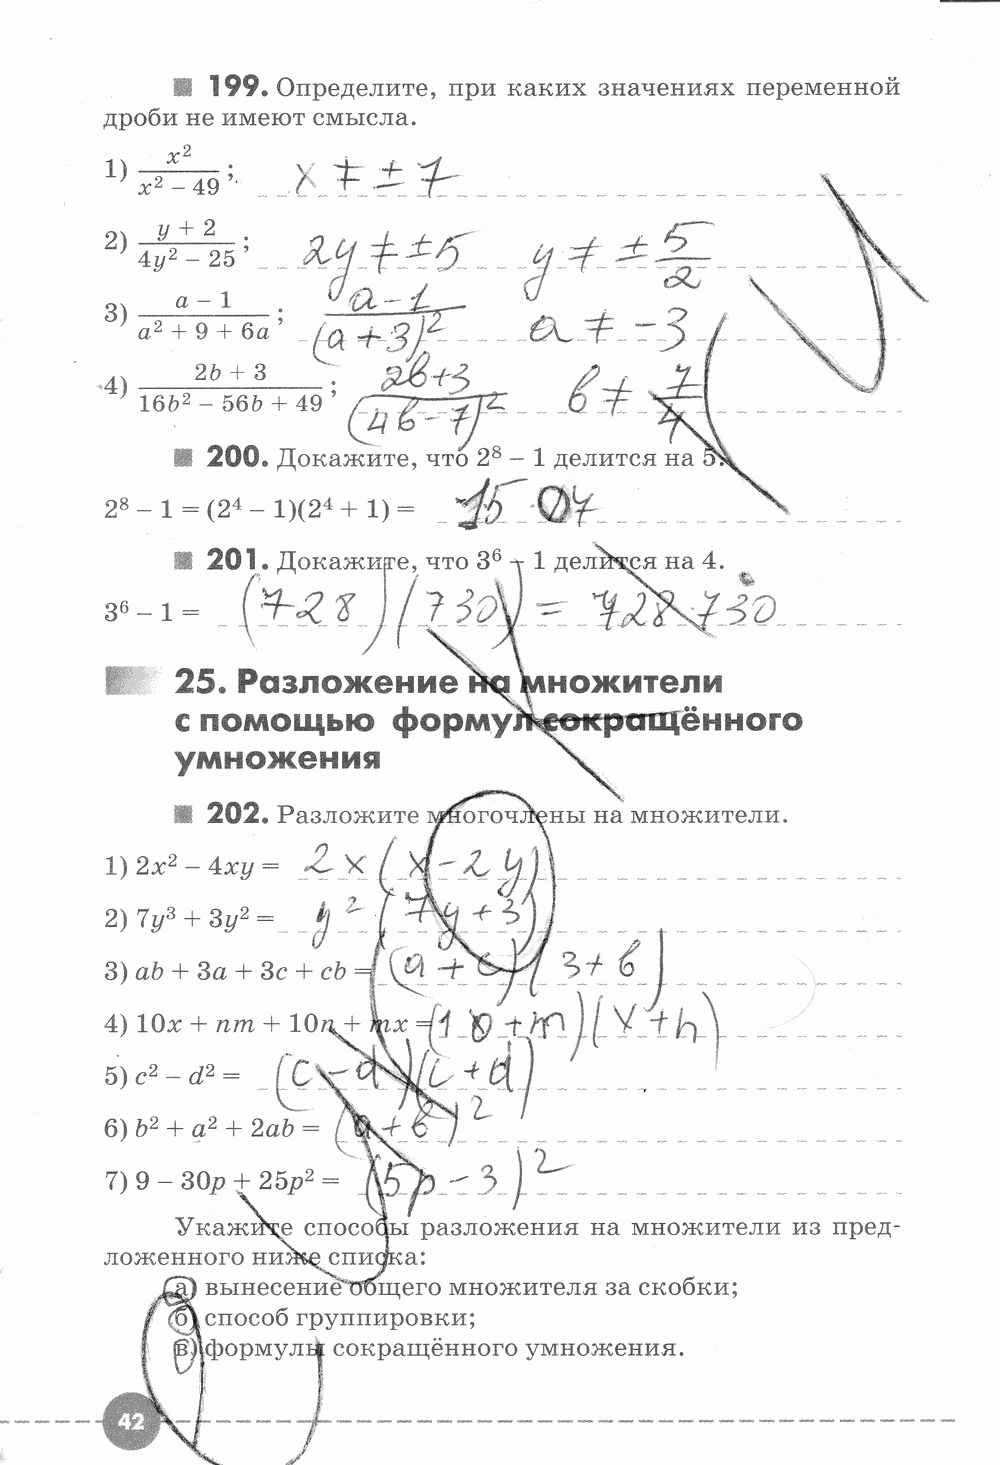 199. Определите, при каких значениях переменной
дроби не имеют смысла.
1) x²/(x² – 49); x ≠ ±7
2) (y + 2)/(4y² – 25); 2y ≠ ±5 y ≠ ± 5/2
3) (a – 1)/(a² + 9 + 6a); (a-1)/(a+3)² a ≠ -3
4) (2b + 3)/(16b² – 56b + 49); (2b+3)/(4b-7)² b ≠ 7/4
200. Докажите, что 2⁸ – 1 делится на 5.
2⁸ – 1 = (2⁴ – 1)(2⁴ + 1) = 15
201. Докажите, что 3⁶ – 1 делится на 4.
3⁶ – 1 = (728)(730) = 728·730
25. Разложение на множители
с помощью формул сокращённого
умножения
202. Разложите многочлены на множители.
1) 2x² – 4xy = 2x(x-2y)
2) 7y³ + 3y² = y²(7y+3)
3) ab + 3a + 3c + cb = (a+c)(3+b)
4) 10x + nm + 10n + mx = (10+m)(x+n)
5) c² – d² = (c-d)(c+d)
6) b² + a² + 2ab = (a+b)²
7) 9 – 30p + 25p² = (5p-3)²
Укажите способы разложения на множители из пред-
ложенного ниже списка:
а) вынесение общего множителя за скобки;
б) способ группировки;
в) формулы сокращённого умножения.
42